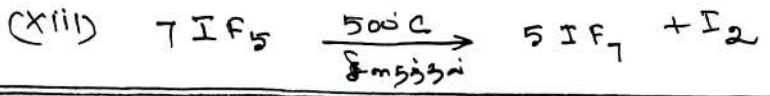 (xiii) 7 IF₅ 500°C → 5 IF₇ + I₂